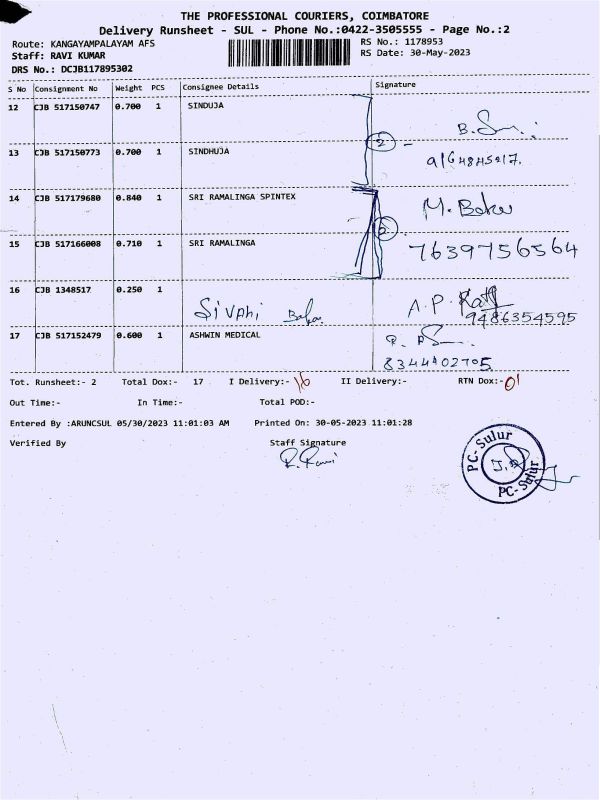 THE PROFESSIONAL COURIERS, COIMBATORE
Delivery Runsheet - SUL - Phone No.:0422-3505555 - Page No.:2
Route: KANGAYAMPALAYAM AFS
RS No.: 1178953
Staff: RAVI KUMAR
RS Date: 30-May-2023
DRS No.: DCJB117895302
S No Consignment No Weight PCS Consignee Details Signature
12 CJB 517150747 0.700 1 SINDUJA
B.
2
13 CJB 517150773 0.700 1 SINDHUJA
14 CJB 517179680 0.840 1 SRI RAMALINGA SPINTEX
M.
2
15 CJB 517166008 0.710 1 SRI RAMALINGA 7639756564
16 CJB 1348517 0.250 1
A.P.
9486354595
17 CJB 517152479 0.600 1 ASHWIN MEDICAL
Tot. Runsheet:- 2 Total Dox:- 17 I Delivery:- 16 II Delivery:- RTN Dox:- 01
Out Time:- In Time:- Total POD:-
Entered By :ARUNCSUL 05/30/2023 11:01:03 AM Printed On: 30-05-2023 11:01:28
Verified By Staff Signature
PC-Sulur
PC-Sulur